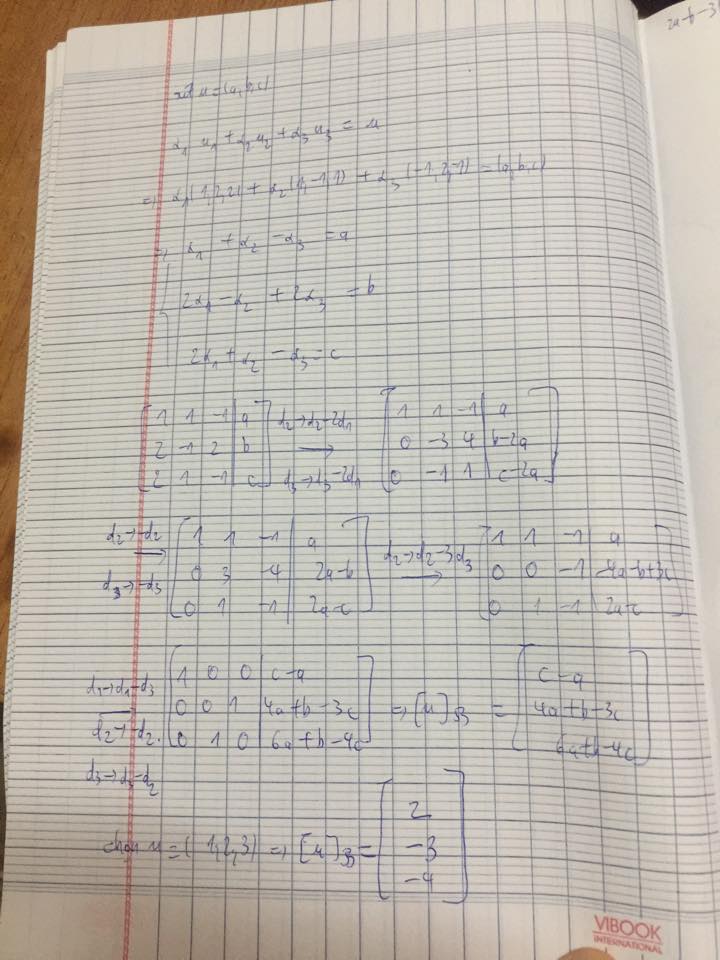 2a-b-3
xét u = (a,b,c)
α₁u₁ + α₂u₂ + α₃u₃ = u
=> α₁(1,2,2) + α₂(1,-1,1) + α₃(-1,2,-1) = (a,b,c)
=> α₁ + α₂ - α₃ = a
2α₁ - α₂ + 2α₃ = b
2α₁ + α₂ - α₃ = c
[1 1 -1 | a; 2 -1 2 | b; 2 1 -1 | c] d₂→d₂-2d₁ d₃→d₃-2d₁ [1 1 -1 | a; 0 -3 4 | b-2a; 0 -1 1 | c-2a]
d₂→-d₂ d₃→-d₃ [1 1 -1 | a; 0 3 -4 | 2a-b; 0 1 -1 | 2a-c] d₂→d₂-3d₃ [1 1 -1 | a; 0 0 -1 | -4a-b+3c; 0 1 -1 | 2a-c]
d₁→d₁-d₃ d₂→-d₂ d₃→d₃-d₂ [1 0 0 | c-a; 0 0 1 | 4a+b-3c; 0 1 0 | 6a+b-4c] => [u]B = [c-a; 4a+b-3c; 6a+b-4c]
chọn u = (1,2,3) => [u]B = [2; -3; -4]
VIBOOK
INTERNATIONAL